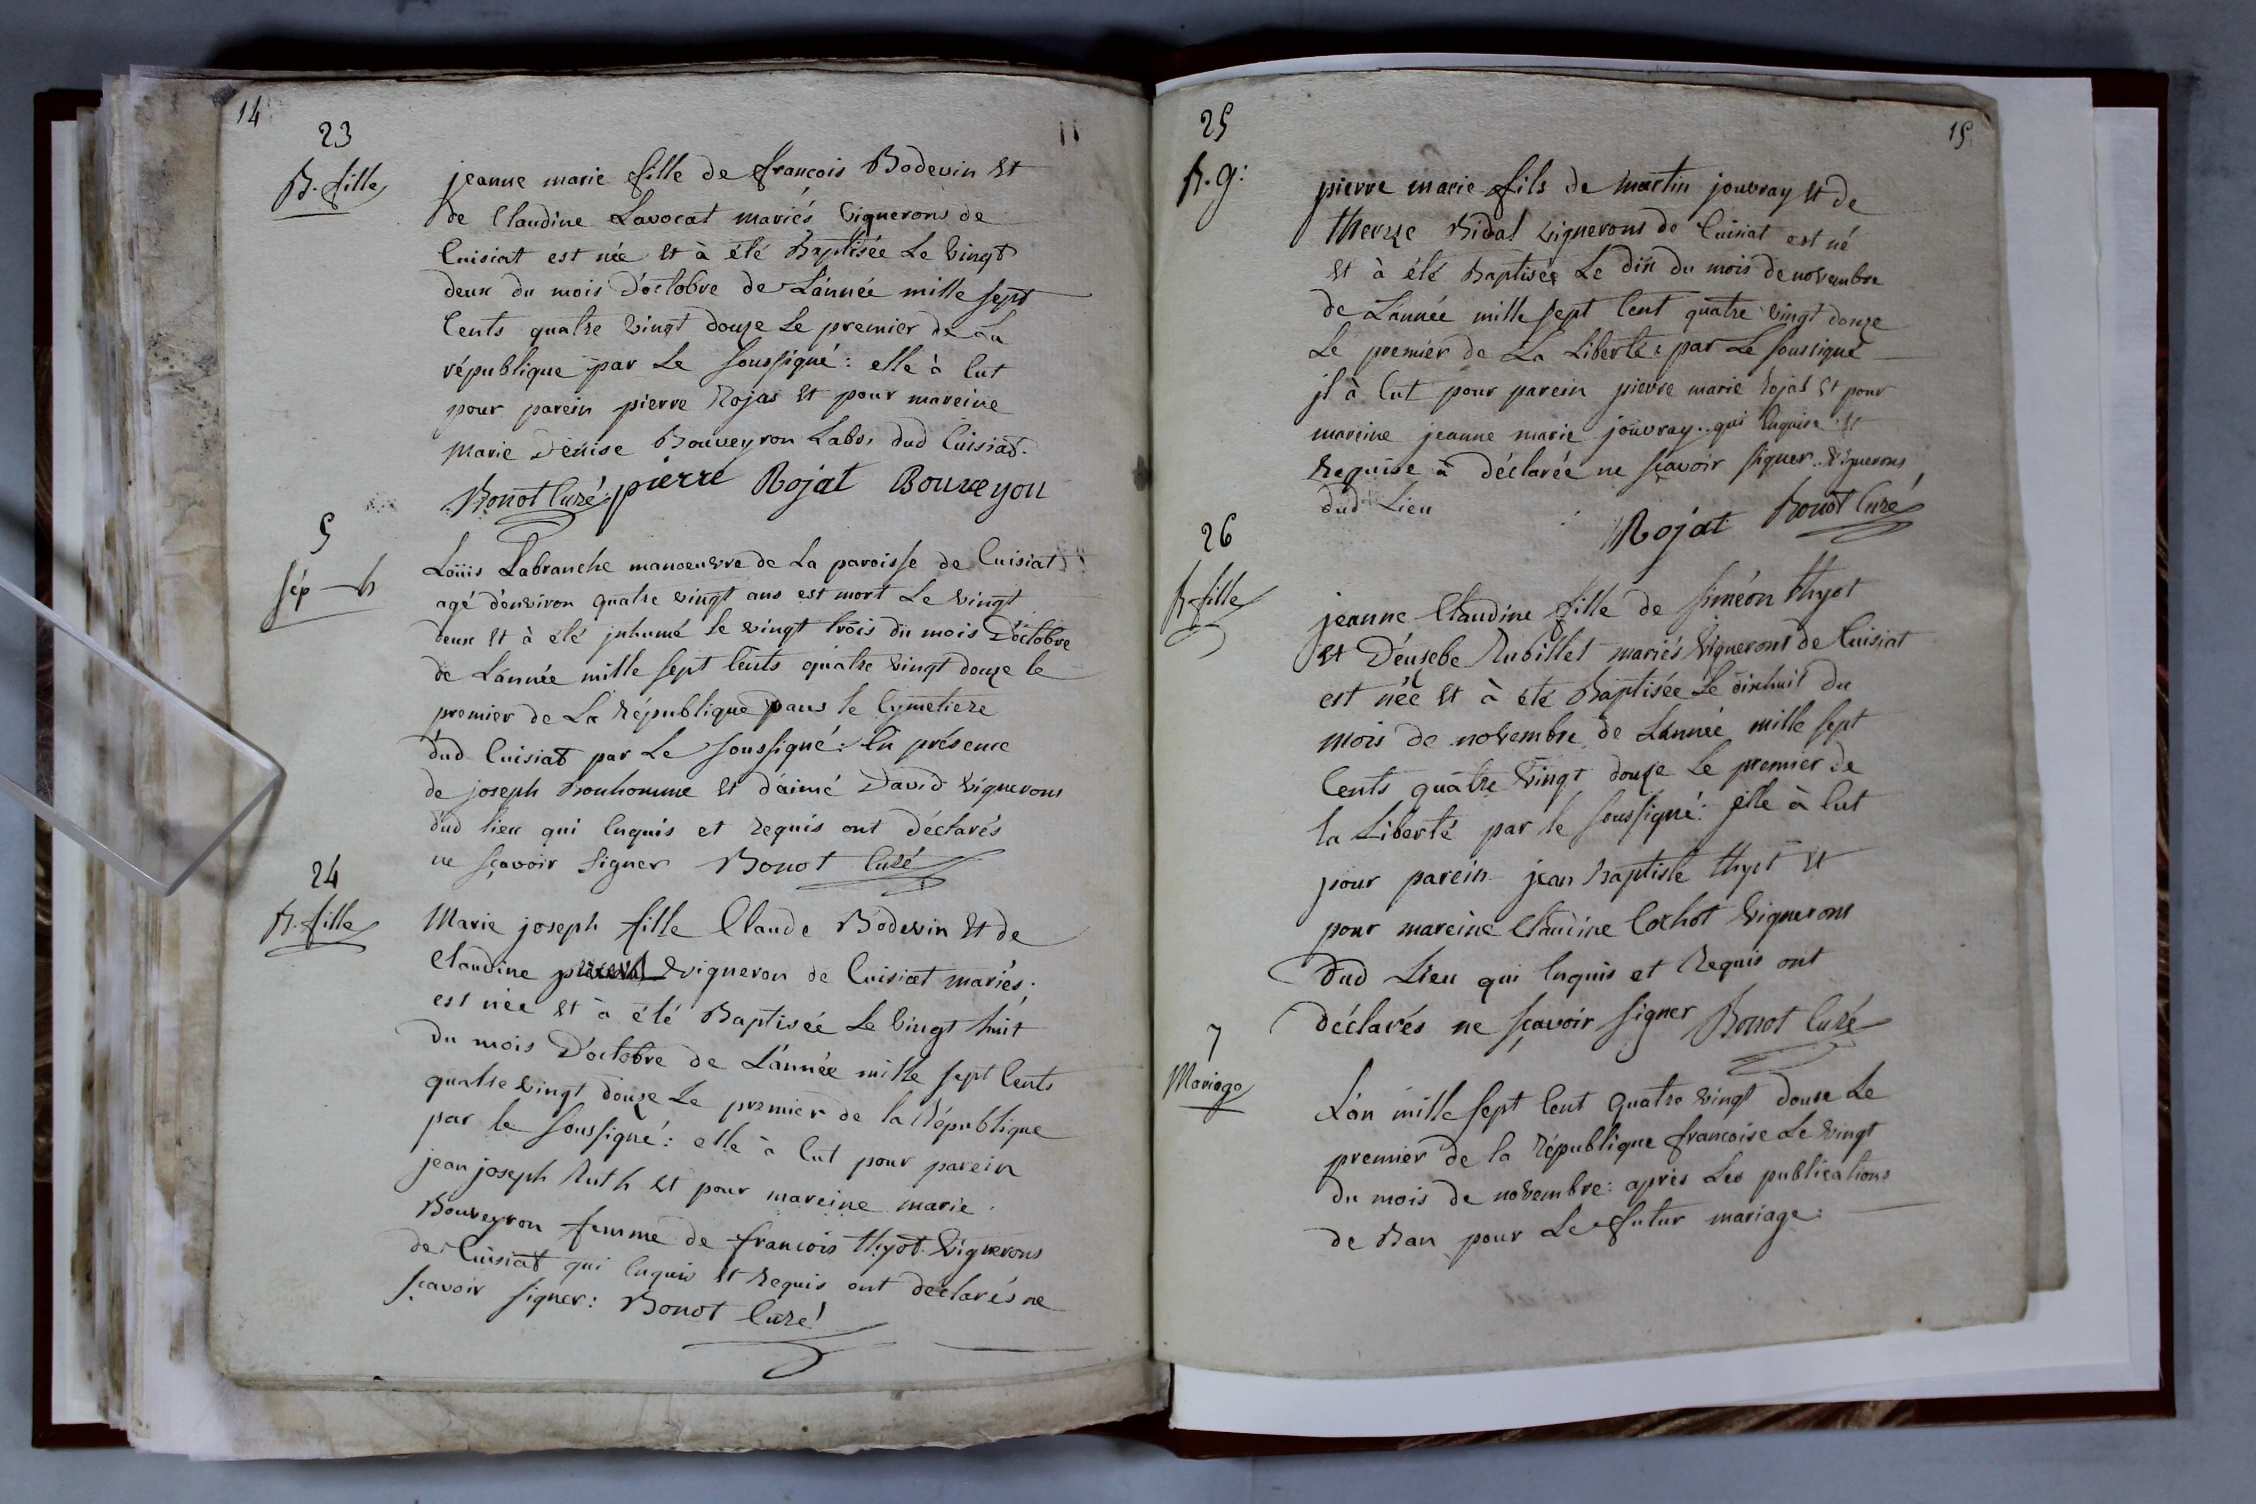 14
11
23
B. fille
jeanne marie fille de francois Bodevin Et
de Claudine Lavocat mariés Vignerons de
Cuisiat est née Et à été Baptisée Le Vingt
deux du mois D'octobre de L'année mille sept
Cents quatre Vingt douze Le premier de La
république par Le soussigné : elle à Eut
pour parein pierre Rojat Et pour mareine
Marie Denise Bouveyron Labr, dud Cuisiat.
Bonot Curé pierre Rojat Bouveyon
5
sép h
Loüis Labranche manoeuvre de La paroisse de Cuisiat
agé d'environ quatre vingt ans est mort Le vingt
deux Et à élé jnhumé le vingt trois du mois D'octobre
de L'année mille sept Cents quatre Vingt douze le
premier de La République Dans le Cymetiere
dud Cuisiat par Le soussigné : En présence
de joseph Bonhomme Et d'aimé David Vignerons
dud lieu qui Enquis et requis ont Déclarés
ne sçavoir signer Bonot Curé
24
B. fille
Marie joseph fille Claude Bodevin Et de
Claudine vigneron de Cuisiat mariés.
est née Et à été Baptisée Le Vingt huit
du mois D'octobre de L'année mille sept Cents
quatre vingt douze Le premier de la République
par le soussigné : elle à Eut pour parein
jean joseph Ruth Et pour mareine marie
Bouveyron femme de francois thyot Vignerons
de Cuisiat qui Enquis Et Requis ont déclarés ne
sçavoir signer : Bonot Curé
15
25
B. g :
pierre marie fils de martin jouvray Et de
therese Vidal Vignerons de Cuisiat est né
Et à été Baptisée Le dix du mois de novembre
de L'année mille sept Cent quatre Vingt douze
Le premier de La Liberté : par Le soussigné
jl à Eut pour parein pierre marie Rojat Et pour
mareine jeanne marie joüvray.. qui Enquise Et
Requise à déclarée ne sçavoir signer.. Vignerons
dud Lieu
Rojat Bonot Curé
26
B. fille
jeanne Claudine fille de siméon thyot
Et D'eusebe Rubillet mariés Vignerons de Cuisiat
est née Et à été Baptisée Le dixhuit du
mois de novembre de L'année mille sept
Cents quatre Vingt douze Le premier de
la Liberté par le soussigné : elle à Eut
pour parein jean Baptiste thyot Et
pour mareine Claudine Cochot Vignerons
Dud Lieu qui Enquis et Requis ont
déclarés ne sçavoir signer Bonot Curé
7
Mariage
L'an mille sept Cent Quatre Vingt douze Le
premier de la République francoise Le Vingt
du mois de novembre : après Les publications
de Ban pour Le futur mariage :